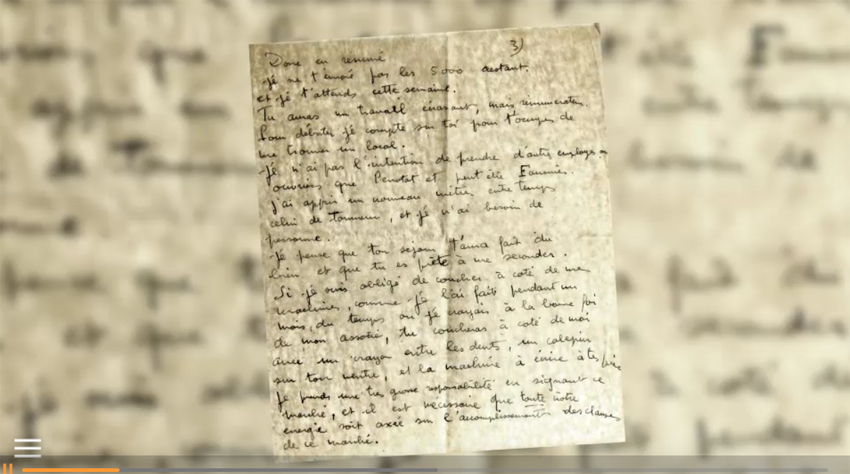 3)
Donc en résumé
Je ne t'envoie pas les 5000 avant.
et je t'attends cette semaine.
Tu auras un travail écrasant, mais rémunérateur
Pour débuter je compte sur toi pour t'occuper de
me trouver un local.
Je n'ai pas l'intention de prendre d'autres employés
ouvriers que et peut être
J'ai appris un nouveau métier entre temps
celui de tourneur, et je n'ai besoin de
personne.
Je pense que ton séjour t'aura fait du
bien et que tu es prête à me seconder.
Si je suis obligé de coucher à coté de mes
machines, comme je l'ai fait pendant un
mois, du temps où je croyais à la bonne foi
de mon associé, tu coucheras à coté de moi
avec un crayon entre les dents, un calepin
sur ton ventre, et la machine à écrire à tes pieds
Je prends une très grosse responsabilité en signant ce
marché, et il est nécessaire que toute notre
énergie soit axée sur l'accomplissement des clauses
de ce marché.